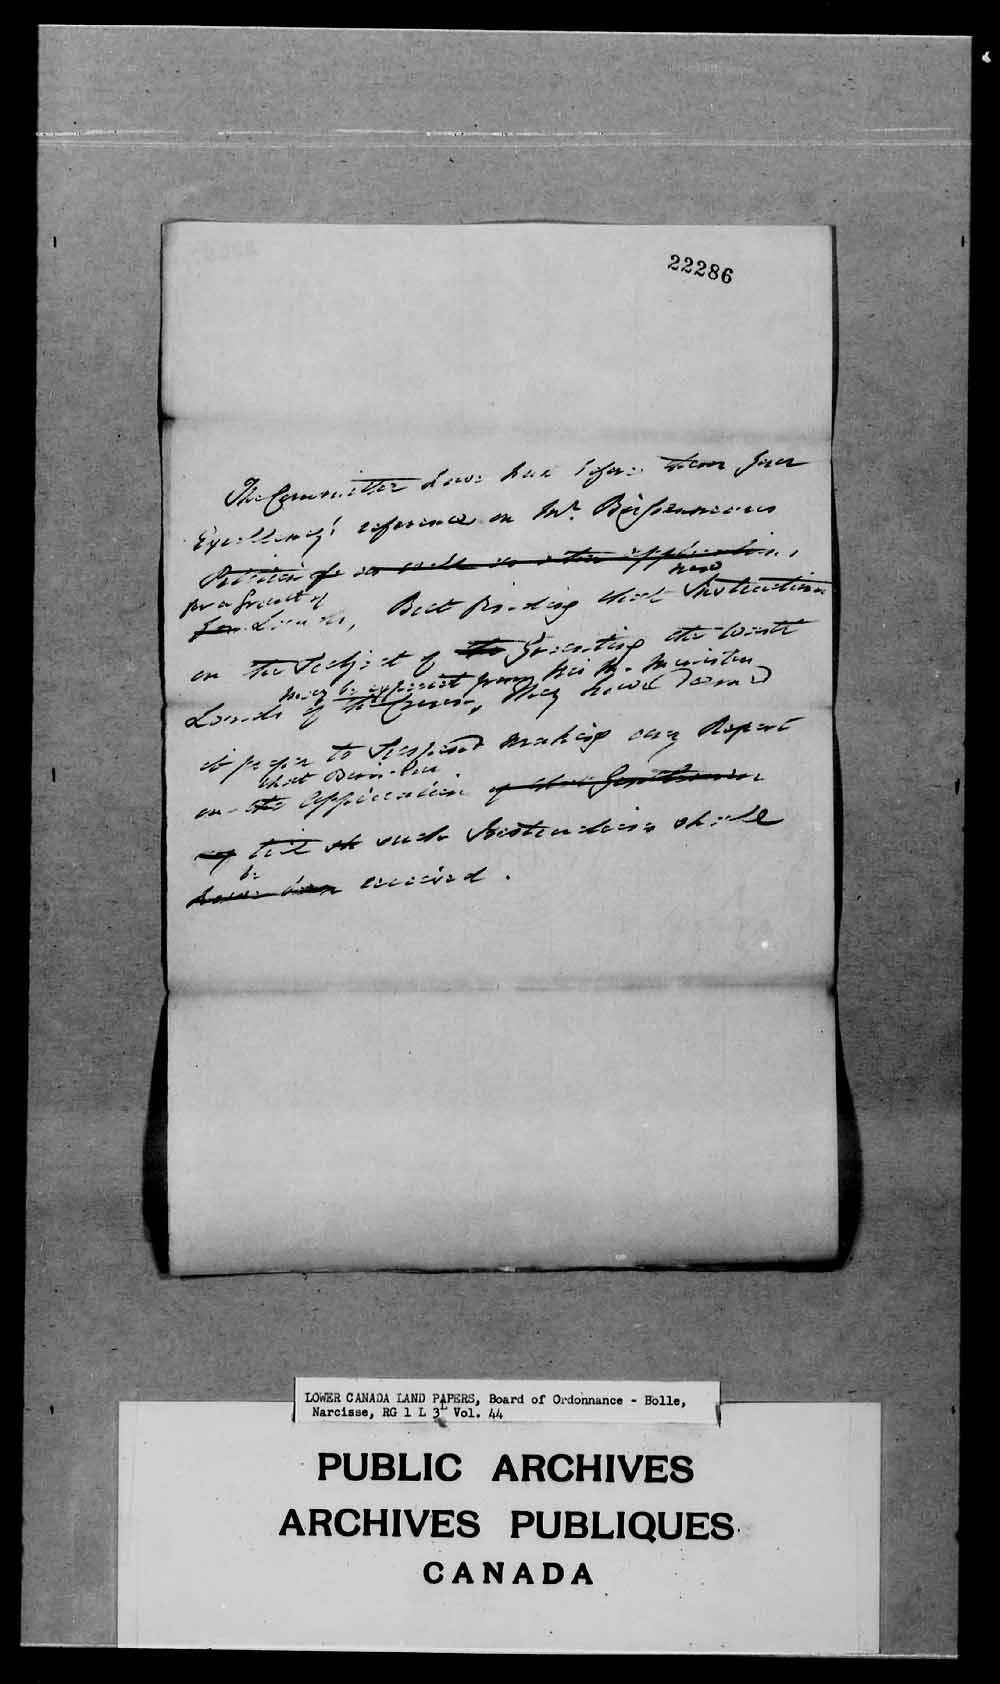 22286
The Committee have had before them Your
Excellency's reference on Mr.
Petition as well as other applications,
for a Grant of
for Lands, But finding that new Instructions
on the Subject of the Granting the waste
may be expected from His M. Ministers
Lands of the Crown, They have deemed
it proper to Suspend making any Report
that
on the Application of that Gentleman
till such Instructions shall
be
have been received.
LOWER CANADA LAND PAPERS, Board of Ordonnance - Bolle,
Narcisse, RG 1 L 3L Vol. 44
PUBLIC ARCHIVES
ARCHIVES PUBLIQUES
CANADA